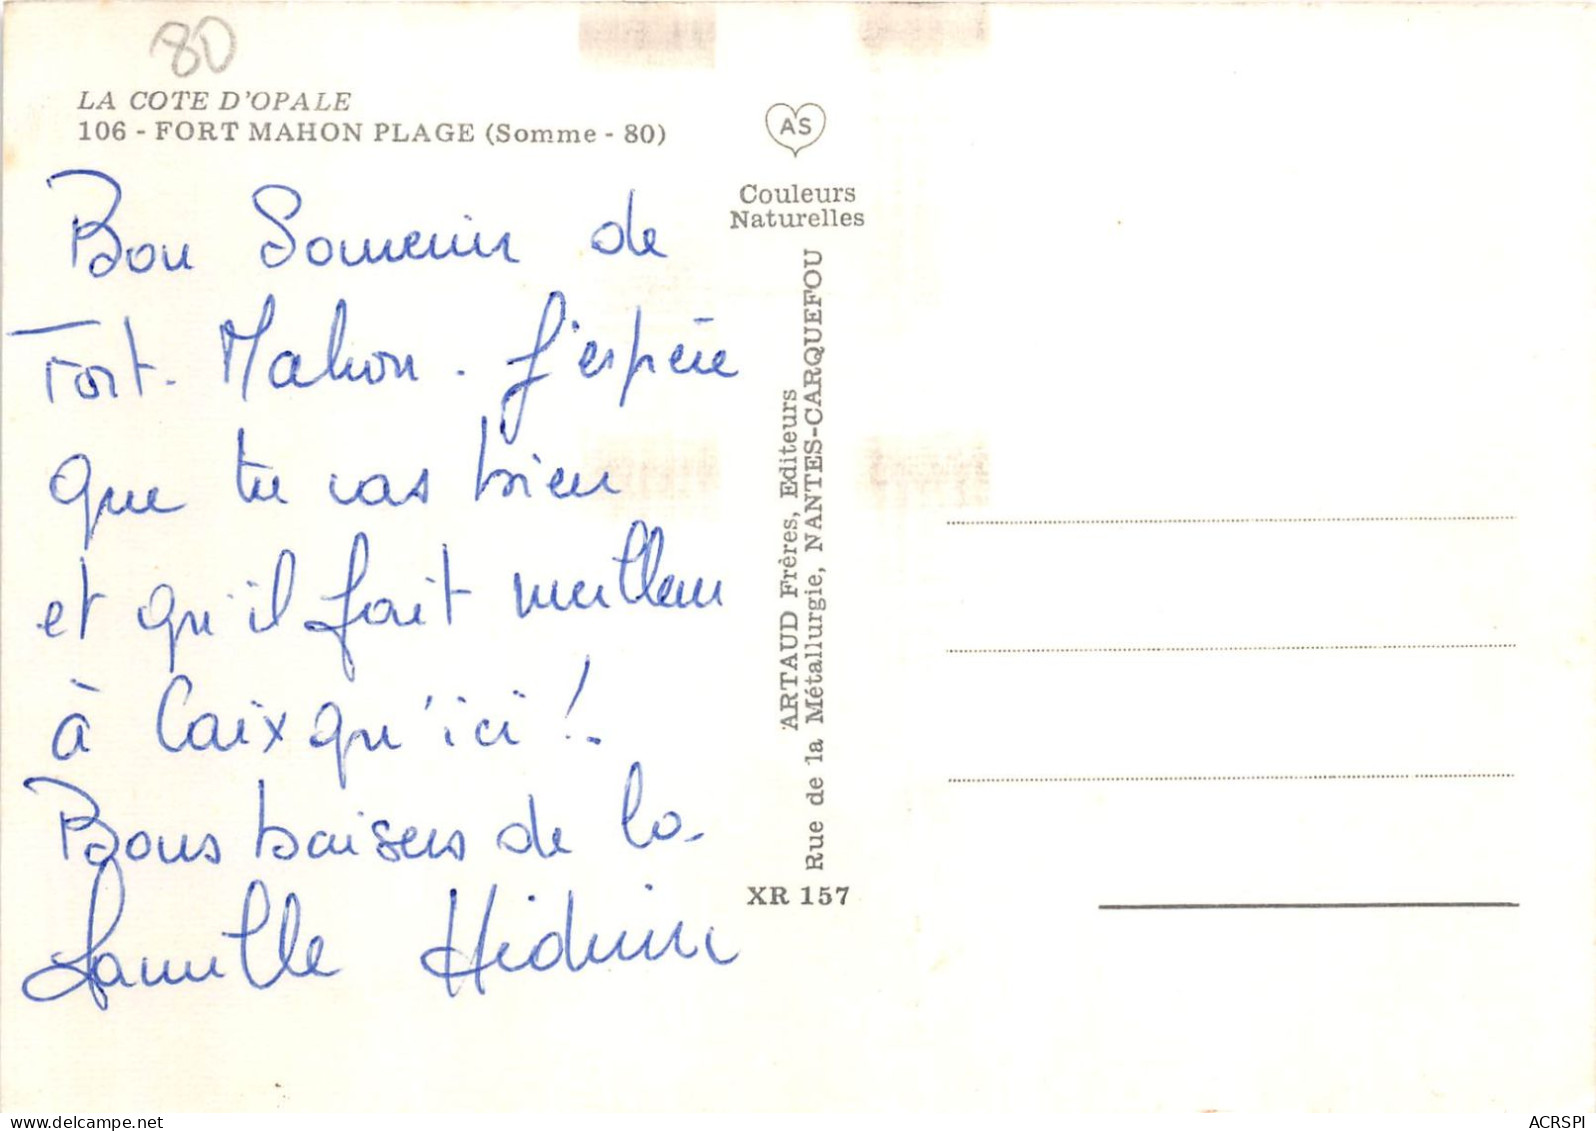 80
LA COTE D'OPALE
106 - FORT MAHON PLAGE (Somme - 80)
Bon Souvenir de
Fort-Mahon. J'espère
que tu vas bien
et qu'il fait meilleur
à Caix qu'ici !.
Bons baisers de la
famille
AS
Couleurs
Naturelles
ARTAUD Frères, Editeurs
Rue de la Métallurgie, NANTES-CARQUEFOU
XR 157
ACRSPI